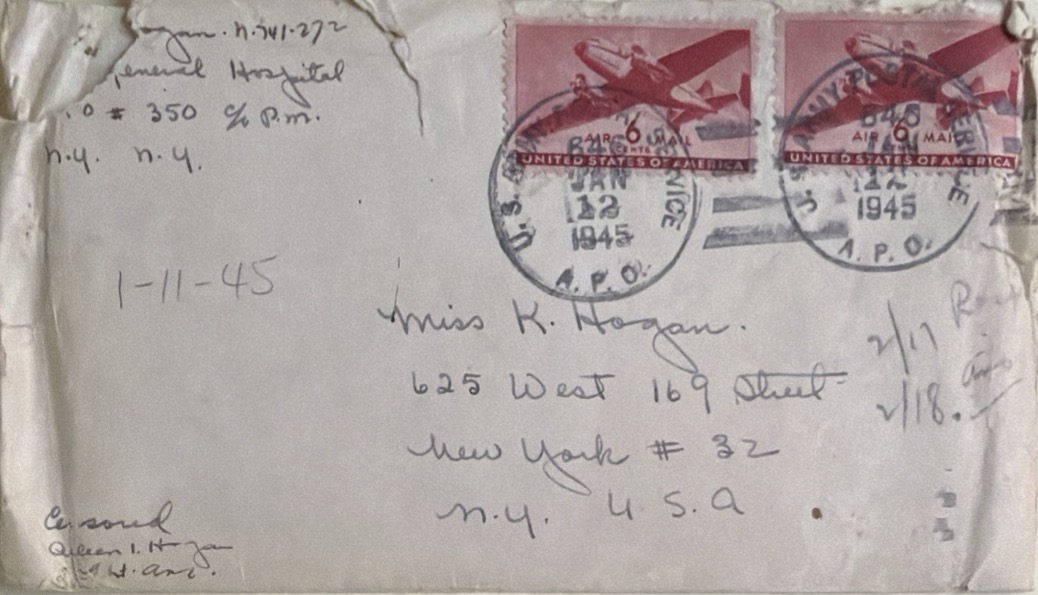 ogan. N-741-272
General Hospital
.O # 350 c/o P.M.
N.Y. N.Y.
AIR 6 MAIL
CENTS
UNITED STATES OF AMERICA
AIR 6 MAIL
UNITED STATES OF AMERICA
U.S. ARMY POSTAL SERVICE
846
JAN
12
1945
A.P.O.
U.S. ARMY POSTAL SERVICE
846
JAN
12
1945
A.P.O.
1-11-45
Miss K. Hogan.
625 West 169 Street
New York # 32
N.Y. U.S.A
2/17
2/18.
Censored
I. Hogan